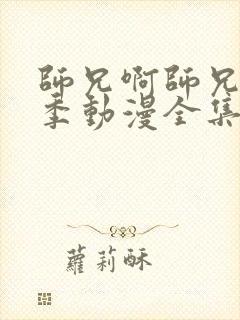 師兄啊師兄
季動漫全集
蘿莉酥